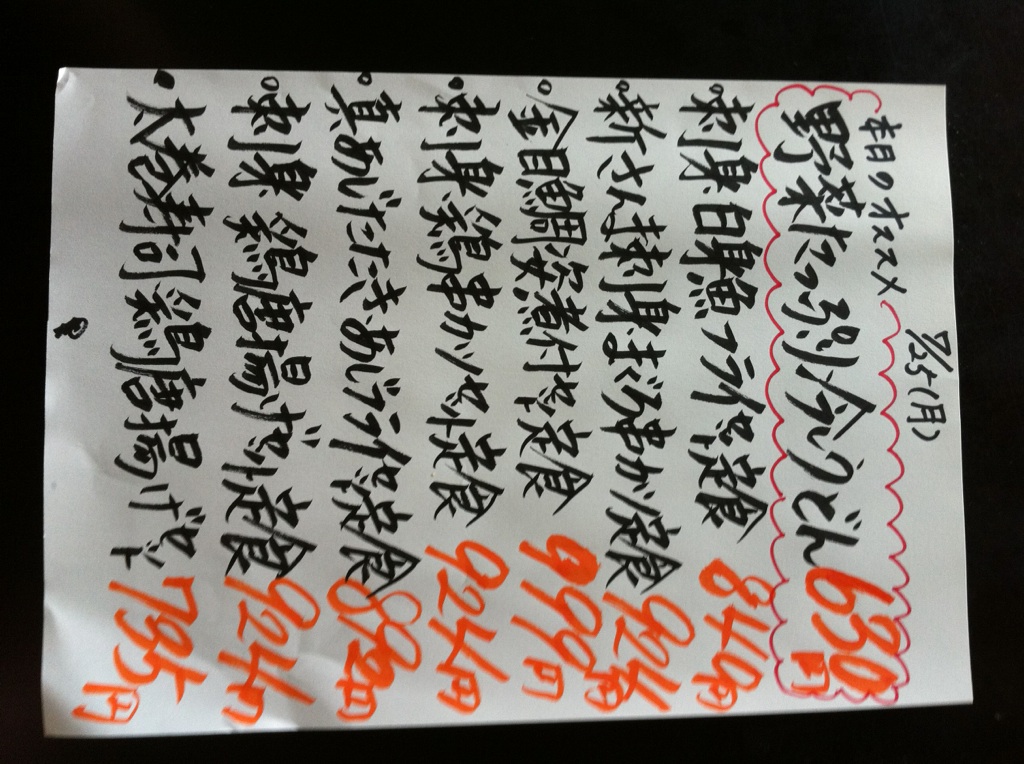 7/25(月)
本日のオススメ
野菜たっぷり冷うどん 630円
。刺身白身魚フライセット定食 840円
。新さんま刺身まぐろ串カツ定食 924円
。金目鯛姿煮付セット定食 999円
。刺身鶏串カツセット定食 924円
。真あじたたきあじフライセット定食 円
。刺身鶏唐揚げセット定食 924円
・太巻寿司鶏唐揚げセット 735円